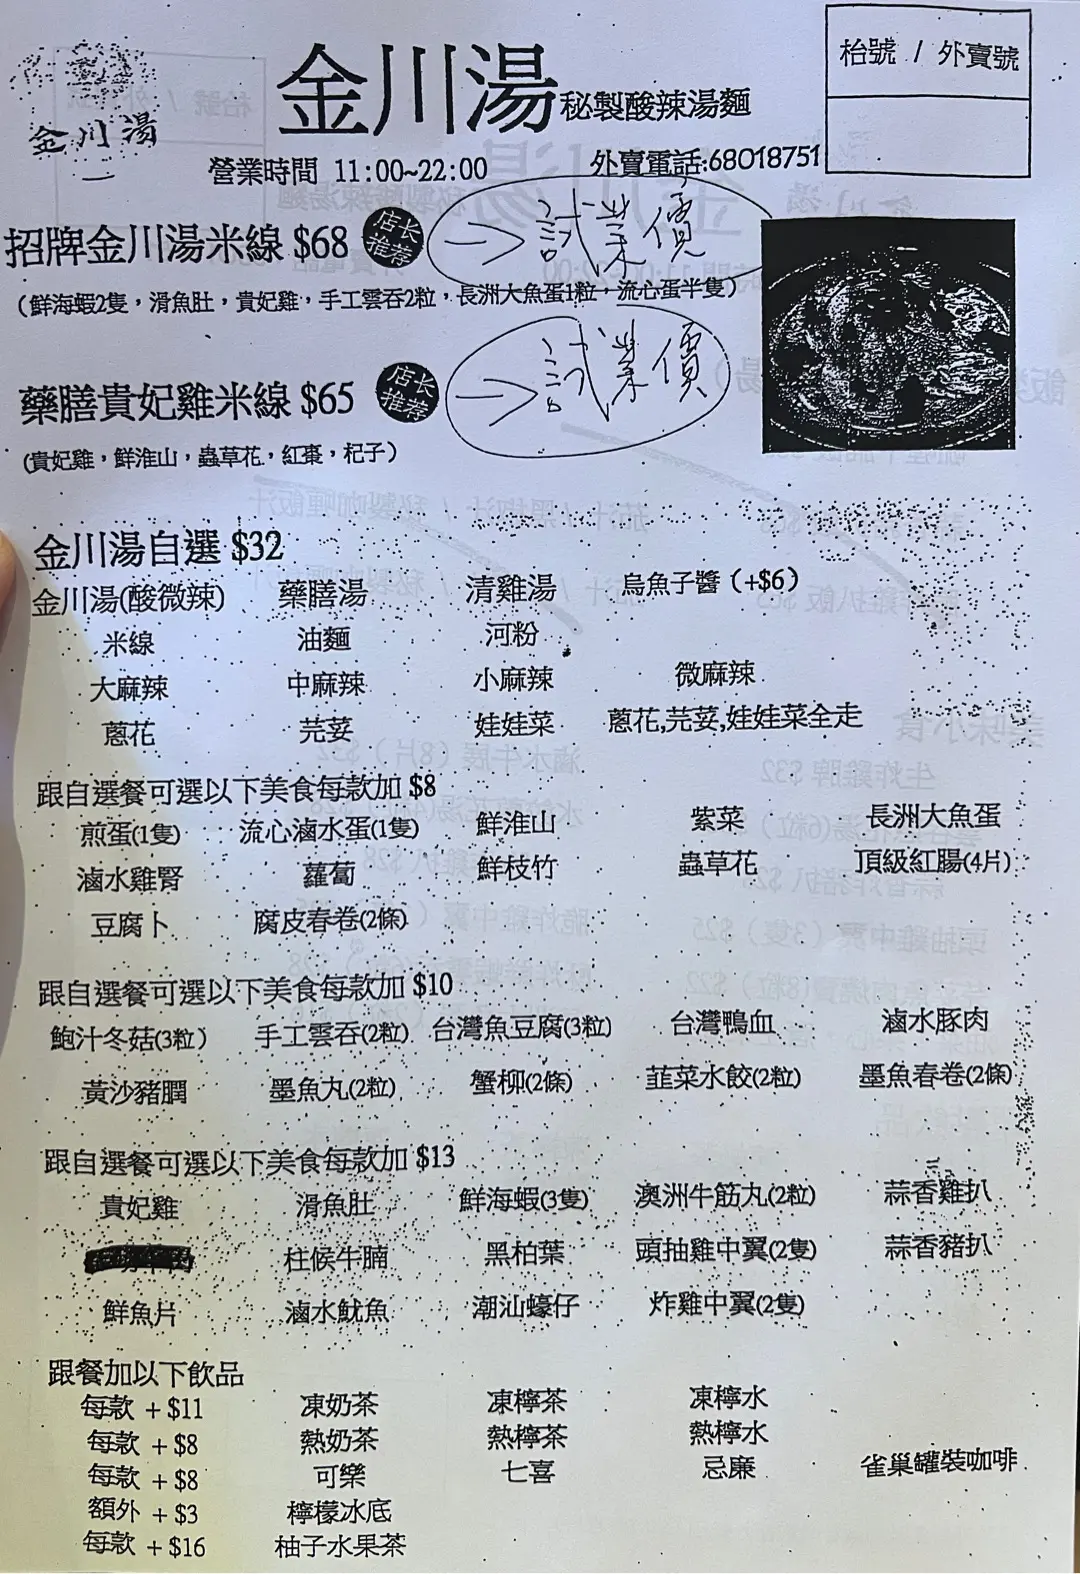 金川湯
金川湯 秘製酸辣湯麵
枱號 / 外賣號
營業時間 11:00~22:00
外賣電話:68018751
招牌金川湯米線 $68 店长推荐 → 試業價
（鮮海蝦2隻，滑魚肚，貴妃雞，手工雲吞2粒，長洲大魚蛋1粒，流心蛋半隻）
藥膳貴妃雞米線 $65 店长推荐 → 試業價
（貴妃雞，鮮淮山，蟲草花，紅棗，杞子）
金川湯自選 $32
金川湯(酸微辣) 藥膳湯 清雞湯 烏魚子醬（+$6）
米線 油麵 河粉
大麻辣 中麻辣 小麻辣 微麻辣
蔥花 芫荽 娃娃菜 蔥花,芫荽,娃娃菜全走
跟自選餐可選以下美食每款加 $8
煎蛋(1隻) 流心滷水蛋(1隻) 鮮淮山 紫菜 長洲大魚蛋
滷水雞腎 蘿蔔 鮮枝竹 蟲草花 頂級紅腸(4片)
豆腐卜 腐皮春卷(2條)
跟自選餐可選以下美食每款加 $10
鮑汁冬菇(3粒) 手工雲吞(2粒) 台灣魚豆腐(3粒) 台灣鴨血 滷水豚肉
黃沙豬膶 墨魚丸(2粒) 蟹柳(2條) 韮菜水餃(2粒) 墨魚春卷(2條)
跟自選餐可選以下美食每款加 $13
貴妃雞 滑魚肚 鮮海蝦(3隻) 澳洲牛筋丸(2粒) 蒜香雞扒
柱候牛腩 黑柏葉 頭抽雞中翼(2隻) 蒜香豬扒
鮮魚片 滷水魷魚 潮汕蠔仔 炸雞中翼(2隻)
跟餐加以下飲品
每款 + $11 凍奶茶 凍檸茶 凍檸水
每款 + $8 熱奶茶 熱檸茶 熱檸水
每款 + $8 可樂 七喜 忌廉 雀巢罐裝咖啡
額外 + $3 檸檬冰底
每款 + $16 柚子水果茶